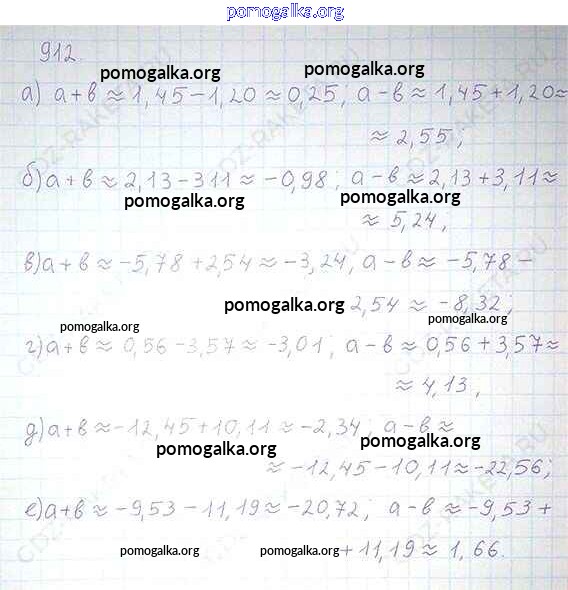 pomogalka.org
912.
pomogalka.org pomogalka.org
а) a+b ≈ 1,45-1,20 ≈ 0,25; a-b ≈ 1,45+1,20≈
≈ 2,55;
б) a+b ≈ 2,13-311 ≈ -0,98; a-b ≈ 2,13+3,11≈
pomogalka.org pomogalka.org
≈ 5,24,
в) a+b ≈ -5,78+2,54 ≈ -3,24, a-b ≈ -5,78-
pomogalka.org 2,54 ≈ -8,32;
pomogalka.org pomogalka.org
г) a+b ≈ 0,56-3,57 ≈ -3,01; a-b ≈ 0,56+3,57≈
≈ 4,13,
д) a+b ≈ -12,45+10,11 ≈ -2,34; a-b ≈
pomogalka.org pomogalka.org
≈ -12,45-10,11 ≈ -22,56;
е) a+b ≈ -9,53-11,19 ≈ -20,72; a-b ≈ -9,53+
pomogalka.org pomogalka.org +11,19 ≈ 1,66.